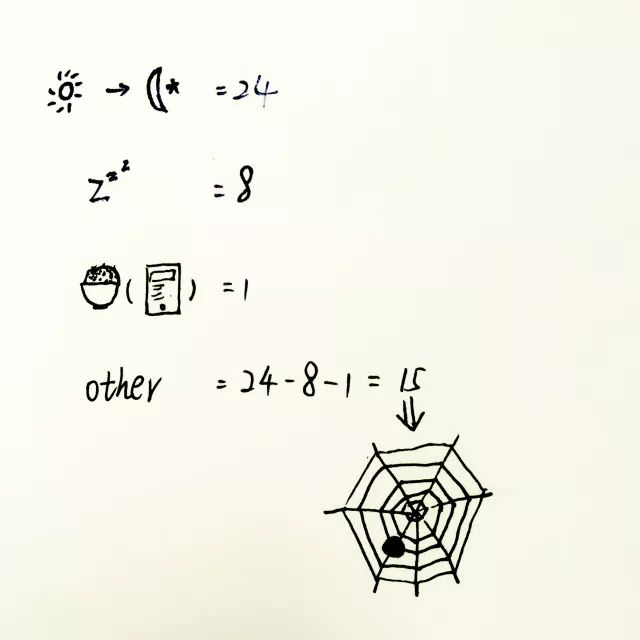 → = 24
Zzz = 8
( ) = 1
other = 24 - 8 - 1 = 15